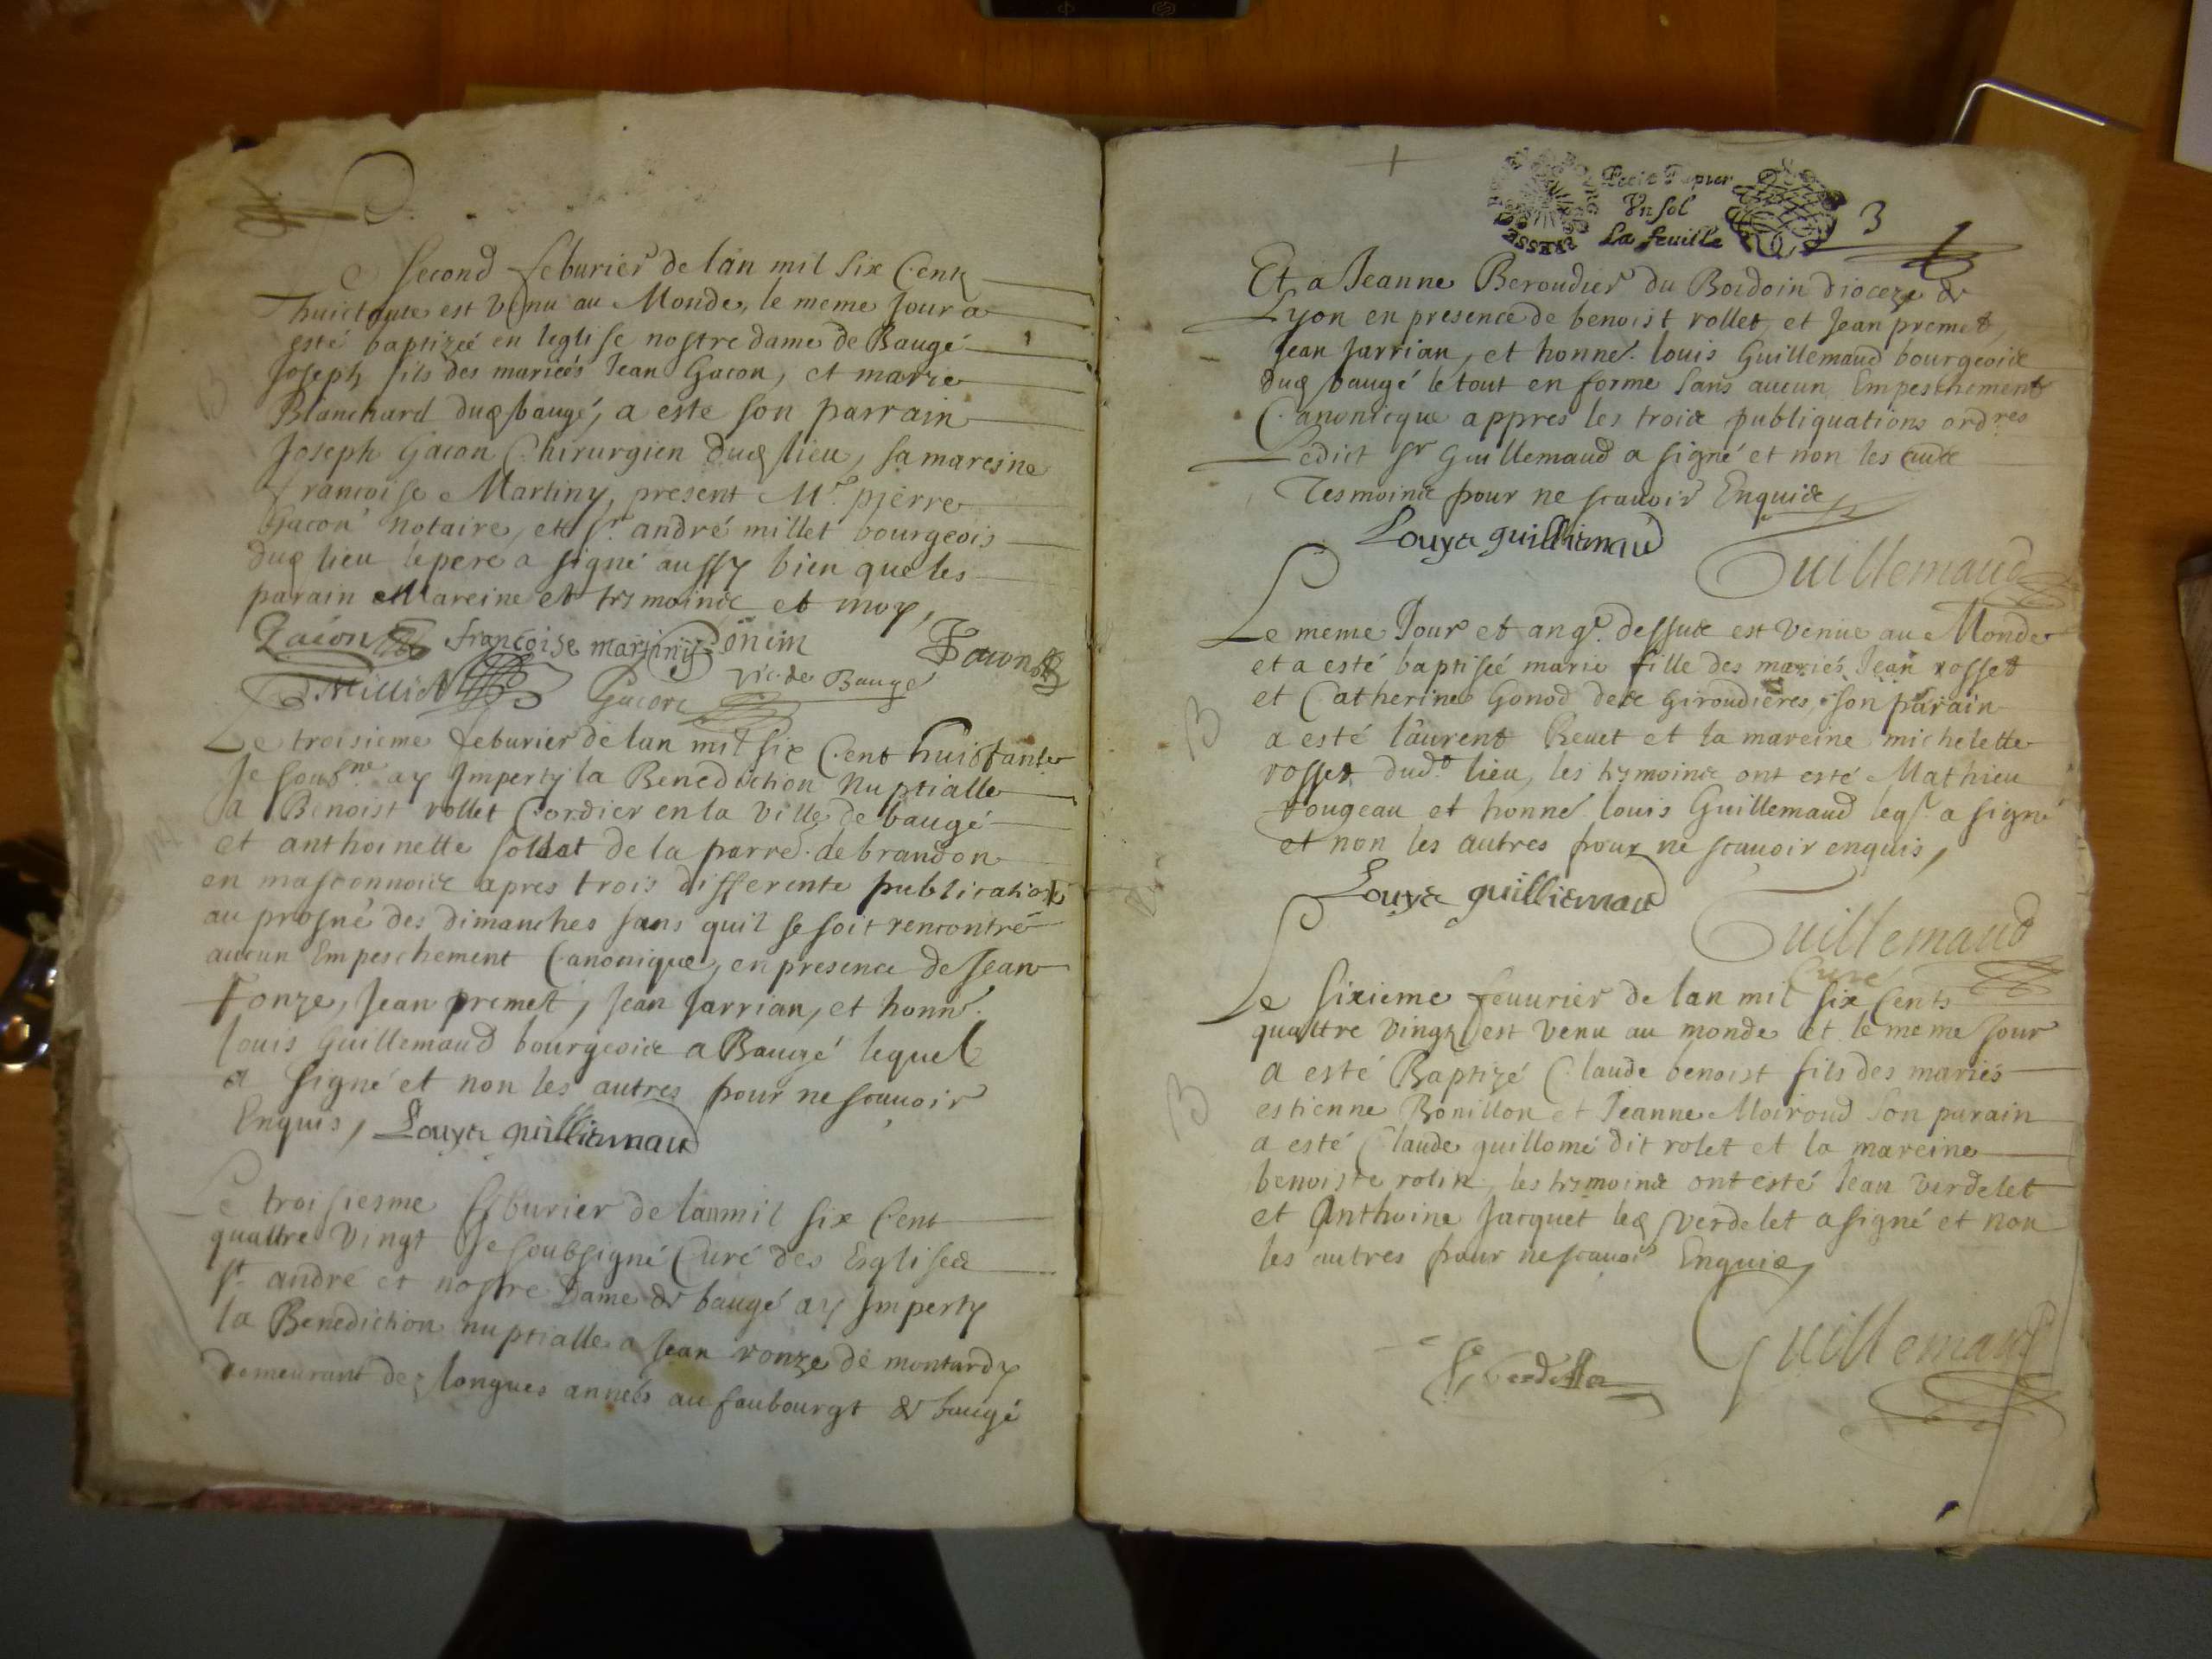 second feburier de lan mil six Cents
huictante est venu au Monde, le meme Jour a
esté baptizéé en leglise nostre dame de Baugé
Joseph fils des mariéés Jean Gacon, et marie
Blanchard dud baugé, a este son parrain
Joseph Gacon Chirurgien dud lieu, sa mareine
francoise Martiny, present Mr. pierre
Gacon notaire, et Sr. andré millet bourgeois
dud lieu le pere a signé aussy bien que les
parain Mareine et tesmoings et moy,
Gacon françoise martiny Gacon
Millict Gacon vic. de Baugé
Le troisieme feburier de lan mil six Cent huistante
Je soubne ay Imperty la Benediction Nuptialle
a Benoist rollet Cordier en la Ville de baugé
et anthoinette sollat de la parre. de brandon
en masconnois apres trois differente publications
au prosne des dimanches sans quil se soit rencontré
aucun Empeschement Canonique, en presence de Jean
ronze, Jean premet, Jean Jarrian, et honné.
louis Guillemaud bourgeois a Baugé lequel
a signé et non les autres pour ne scauoir
Enquis, Louys guilliemaud
Le troisiesme feburier de lan mil six Cent
quattre Vingt Je soubsigné Curé des Esglises
st. andré et nostre Dame de baugé ay Imperty
la Benediction nuptialle a Jean ronze de montardy
demeurant dez longues annéés au faubourgt de baugé
Petit Papier
Vn sol
La feuille
3
Et a Jeanne Beroudier du Boidoin dioceze de
Lyon en presence de benoist rollet, et Jean premet,
Jean Jarrian, et honné. louis Guillemaud bourgeois
dud baugé le tout en forme sans aucun Empeschement
Canonicque appres les trois publiquations ordres
Ledict Sr Guillemaud a signé et non les auts
Tesmoins pour ne scauoir Enquis
Louys guilliemaud
Guillemaud
Le meme Jour et an q. dessus est venue au Monde
et a esté baptiséé marie fille des mariés Jean rosset
et Catherine Gonod des Giroudieres, son parain
a esté laurent Reuet et la mareine michelette
rosset dud. lieu, les tesmoins ont esté Mathieu
rougeau et honné louis Guillemaud leql. a signé
et non les autres pour ne scauoir enquis,
Louys guilliemaud
Guillemaud
Curé
Le sixieme feuurier de lan mil six Cents
quattre vingt est venu au monde et le meme Jour
a esté Baptizé Claude benoist fils des mariés
estienne Bonillon et Jeanne Moiroud son parain
a esté Claude guillomé dit rolet et la mareine
benoiste rolin, les tesmoins ont esté Jean verdelet
et Anthoine Jacquet led verdelet a signé et non
les autres pour ne scauoir Enquis,
Guillemaud